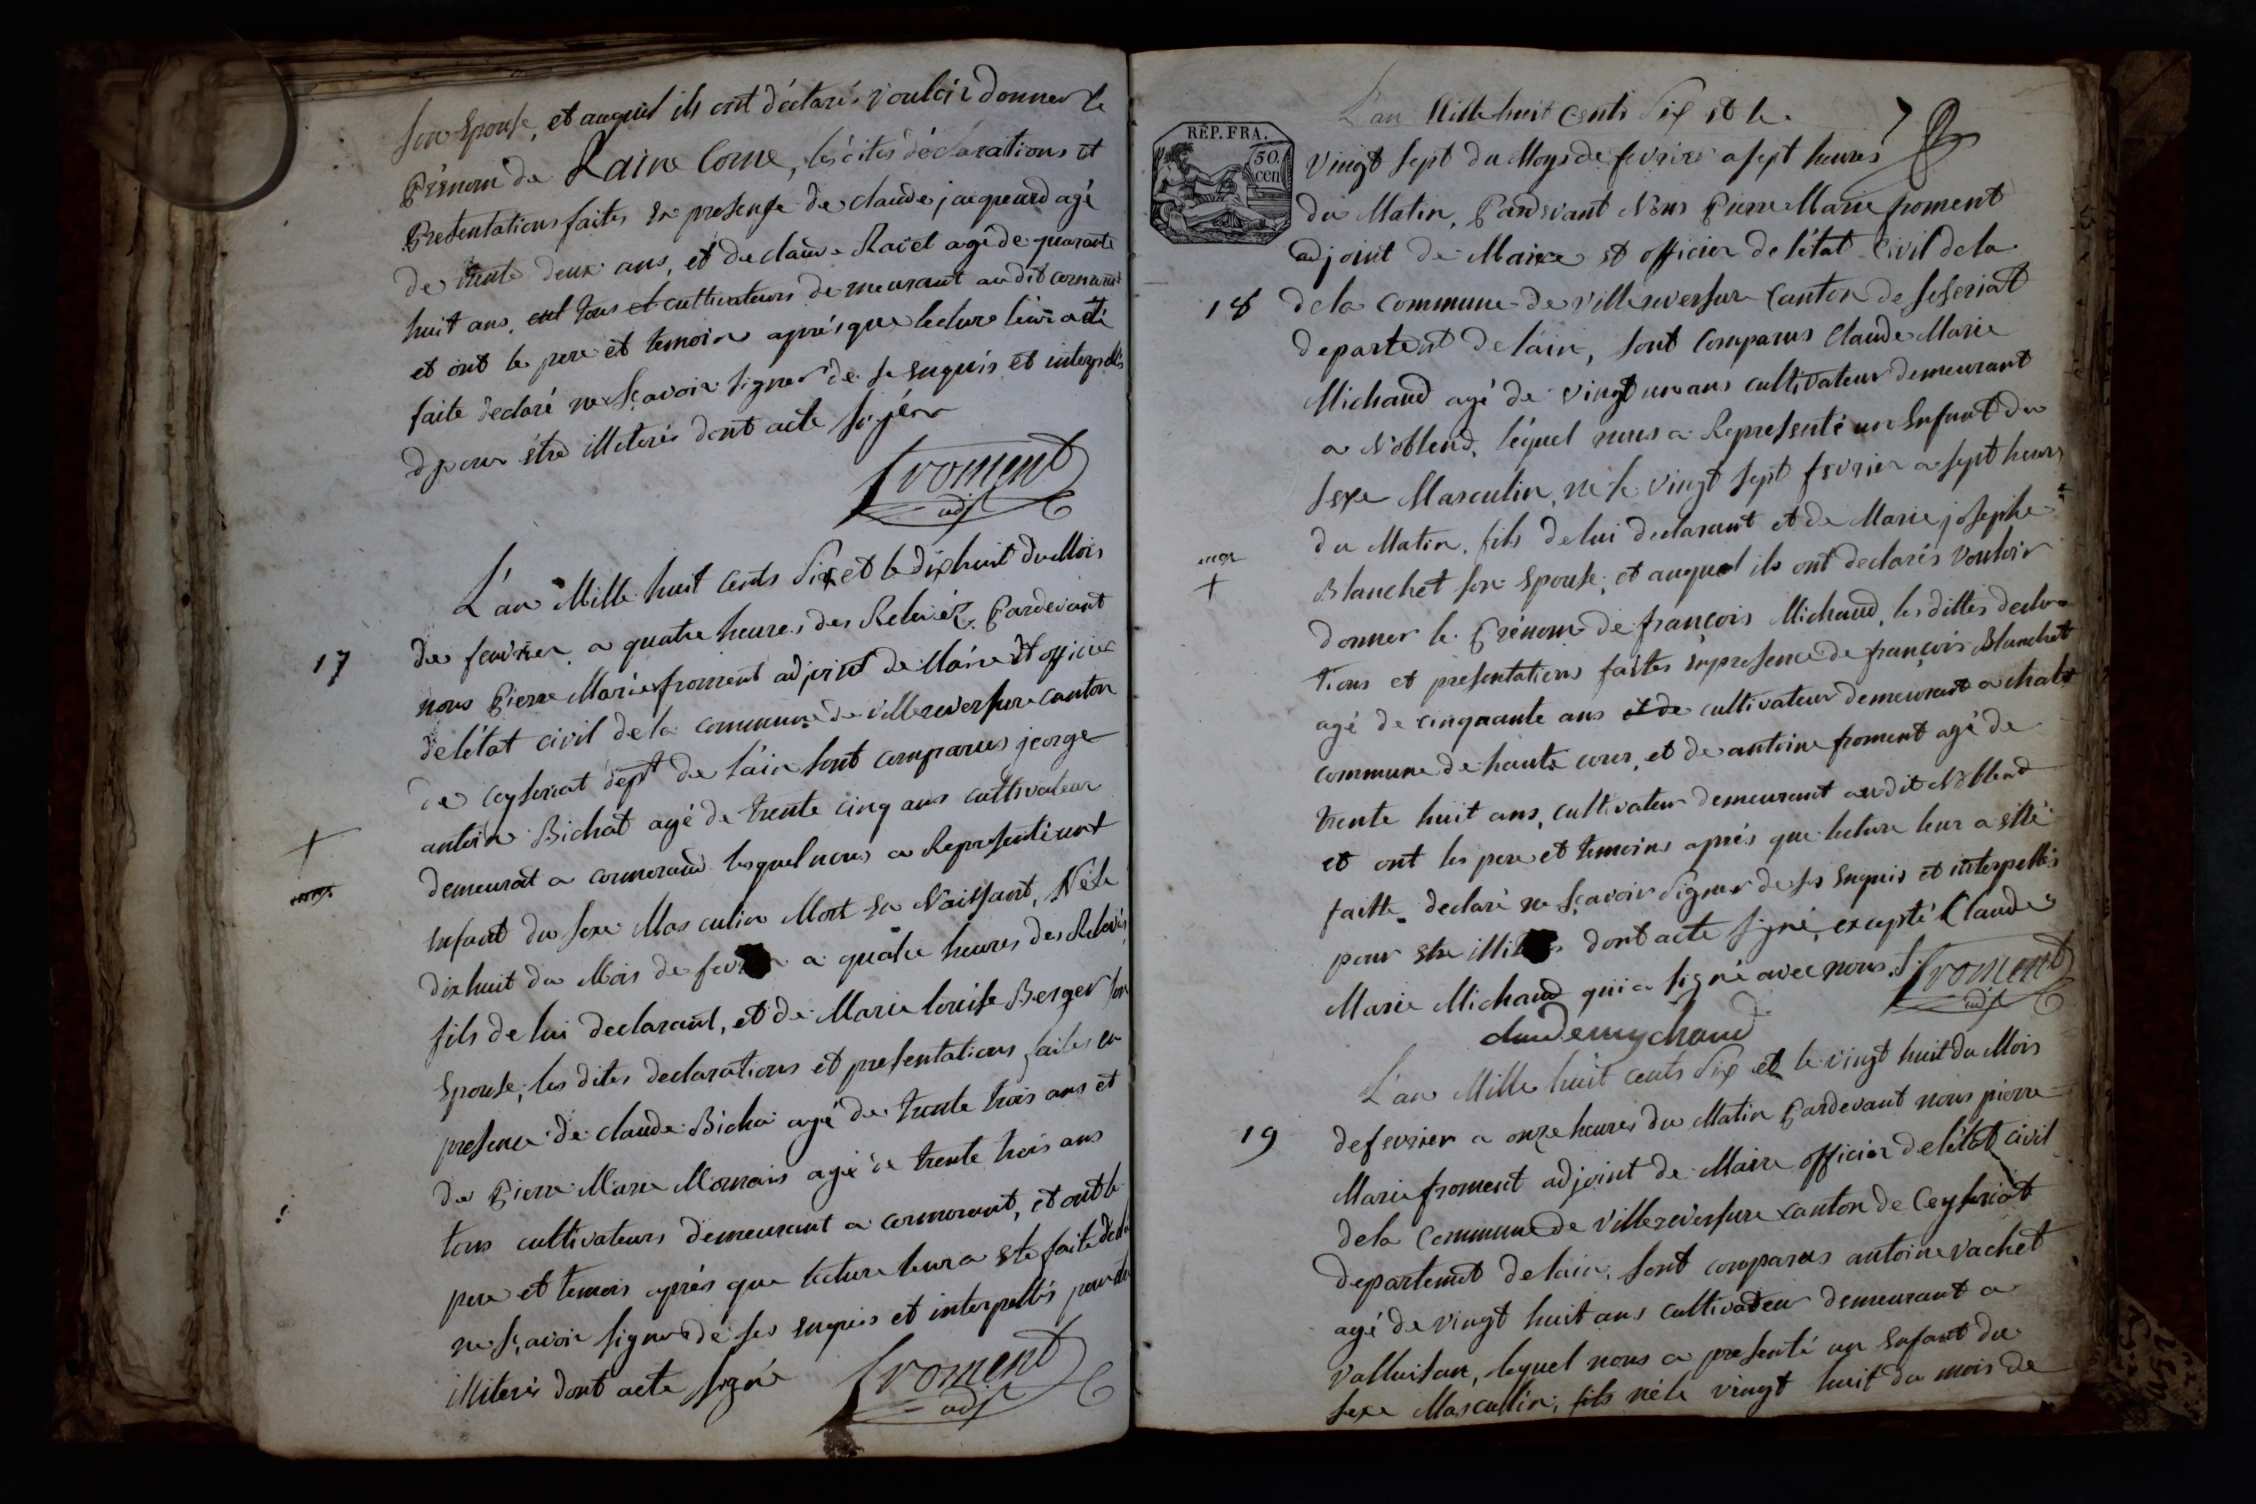 son Epouse, et auquel ils ont déclarés vouloir donner le
Prénom de Raive Come, les dites déclarations et
Presentations faites en presence de claude jacquemd agé
de trente deux ans, et de claude Ravet agé de quarante
huit ans, tous cultivateurs demeurant audit cormorant
et ont le pere et temoins aprés que lecture leur a eté
faite declaré ne sçavoir signer de se enquis et interpellés
pour étre illiterés dont acte
froment
adj
L'an Mille huit cents Six et le dix huit du Mois
17 de fevrier a quatre heures des Relevéz Pardevant
nous Pierre Marie froment adjoint de Maire et officier
de l'état civil de la commune de villereversure canton
de ceyseriat dept de l'ain sont comparus jeorge
antoin Bichat agé de trente cinq ans cultivateur
demeurat a cormorand lesquel nous a Representé un
Enfant du sexe Masculin Mort En Naissant, Né le
dix huit du Mois de a quatre heures des Relevés
fils de lui declarant, et de Marie louise Berger son
Epouse, les dites declarations et presentations faites en
presence de claude Bicha agé de trente trois ans et
de Pierre Marie Mornais agé de trente trois ans
tous cultivateurs demeurant a cormorant, et ont le
pere et temois aprés que lecture leur a ete faite
ne sçavoir signer de ses enquis et interpellés pour
illiterés dont acte signé
froment
adj
L'an Mille huit Cents Six et le
RÉP. FRA.
50.
cen
Vingt Sept du Moys de fevrier a sept heures
du Matin, Pardevant Nous Pierre Marie froment
adjoint de Maire et officier de l'état Civil de la
18 de la commune de villereversure Canton de seseriat
departent de l'ain, sont Comparus Claude Marie
Michaud agé de vingt un ans cultivateur demeurant
a Noblend, léquel nous a Representé un Enfant du
sexe Masculin, né le vingt sept fevrier a sept heures
du Matin, fils de lui declarant et de Marie josephe
Blanchet son Epouse, et auquel ils ont declarés vouloir
donner le Prénom de françois Michaud, les dittes declara
tions et presentations faites en presence de françois Blanchet
agé de cinquante ans et de cultivateur demeurant a chals
commune de haute cour, et de antoine froment agé de
trente huit ans, cultivateur demeurant audit Noblend
et ont les pere et temoins aprés que lecture leur a etté
faitte declaré ne sçavoir signer de ses enquis et interpellés
pour etre dont acte signé, excepté Claude
Marie Michaud qui a signé avec nous.
froment
adj
claudemychaud
L'an Mille huit cents Six et le vingt huit du Mois
19 de fevrier a onze heures du Matin Pardevant nous pierre
Marie froment adjoint de Maire officier de létat civil
de la Commune de villereversure canton de Ceyseriat
departemet de lain, sont comparus antoine vachet
agé de vingt huit ans cultivateur demeurant a
Valluisan, lequel nous a presenté un Enfant du
sexe Mascullin, fils né le vingt huit du mois de